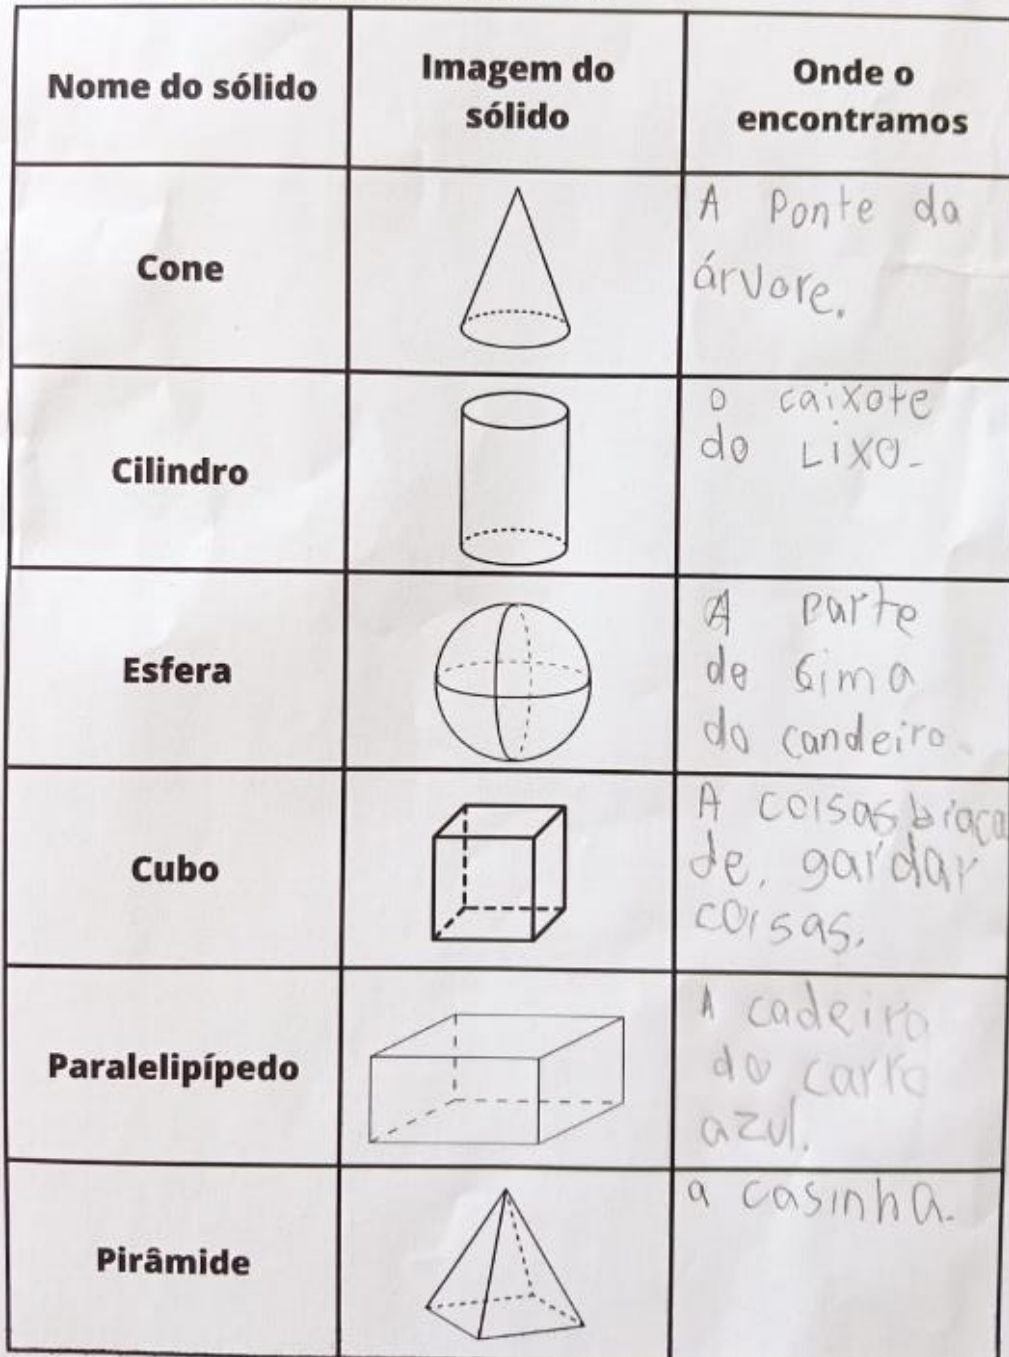 Nome do sólido
Imagem do
sólido
Onde o
encontramos
Cone
A Ponte da
árvore.
Cilindro
o caixote
do Lixo-
Esfera
A parte
de Cima
do candeiro.
Cubo
A coisas
de. gardar
coisas.
Paralelipípedo
A cadeira
do carro
azul.
Pirâmide
a casinha.